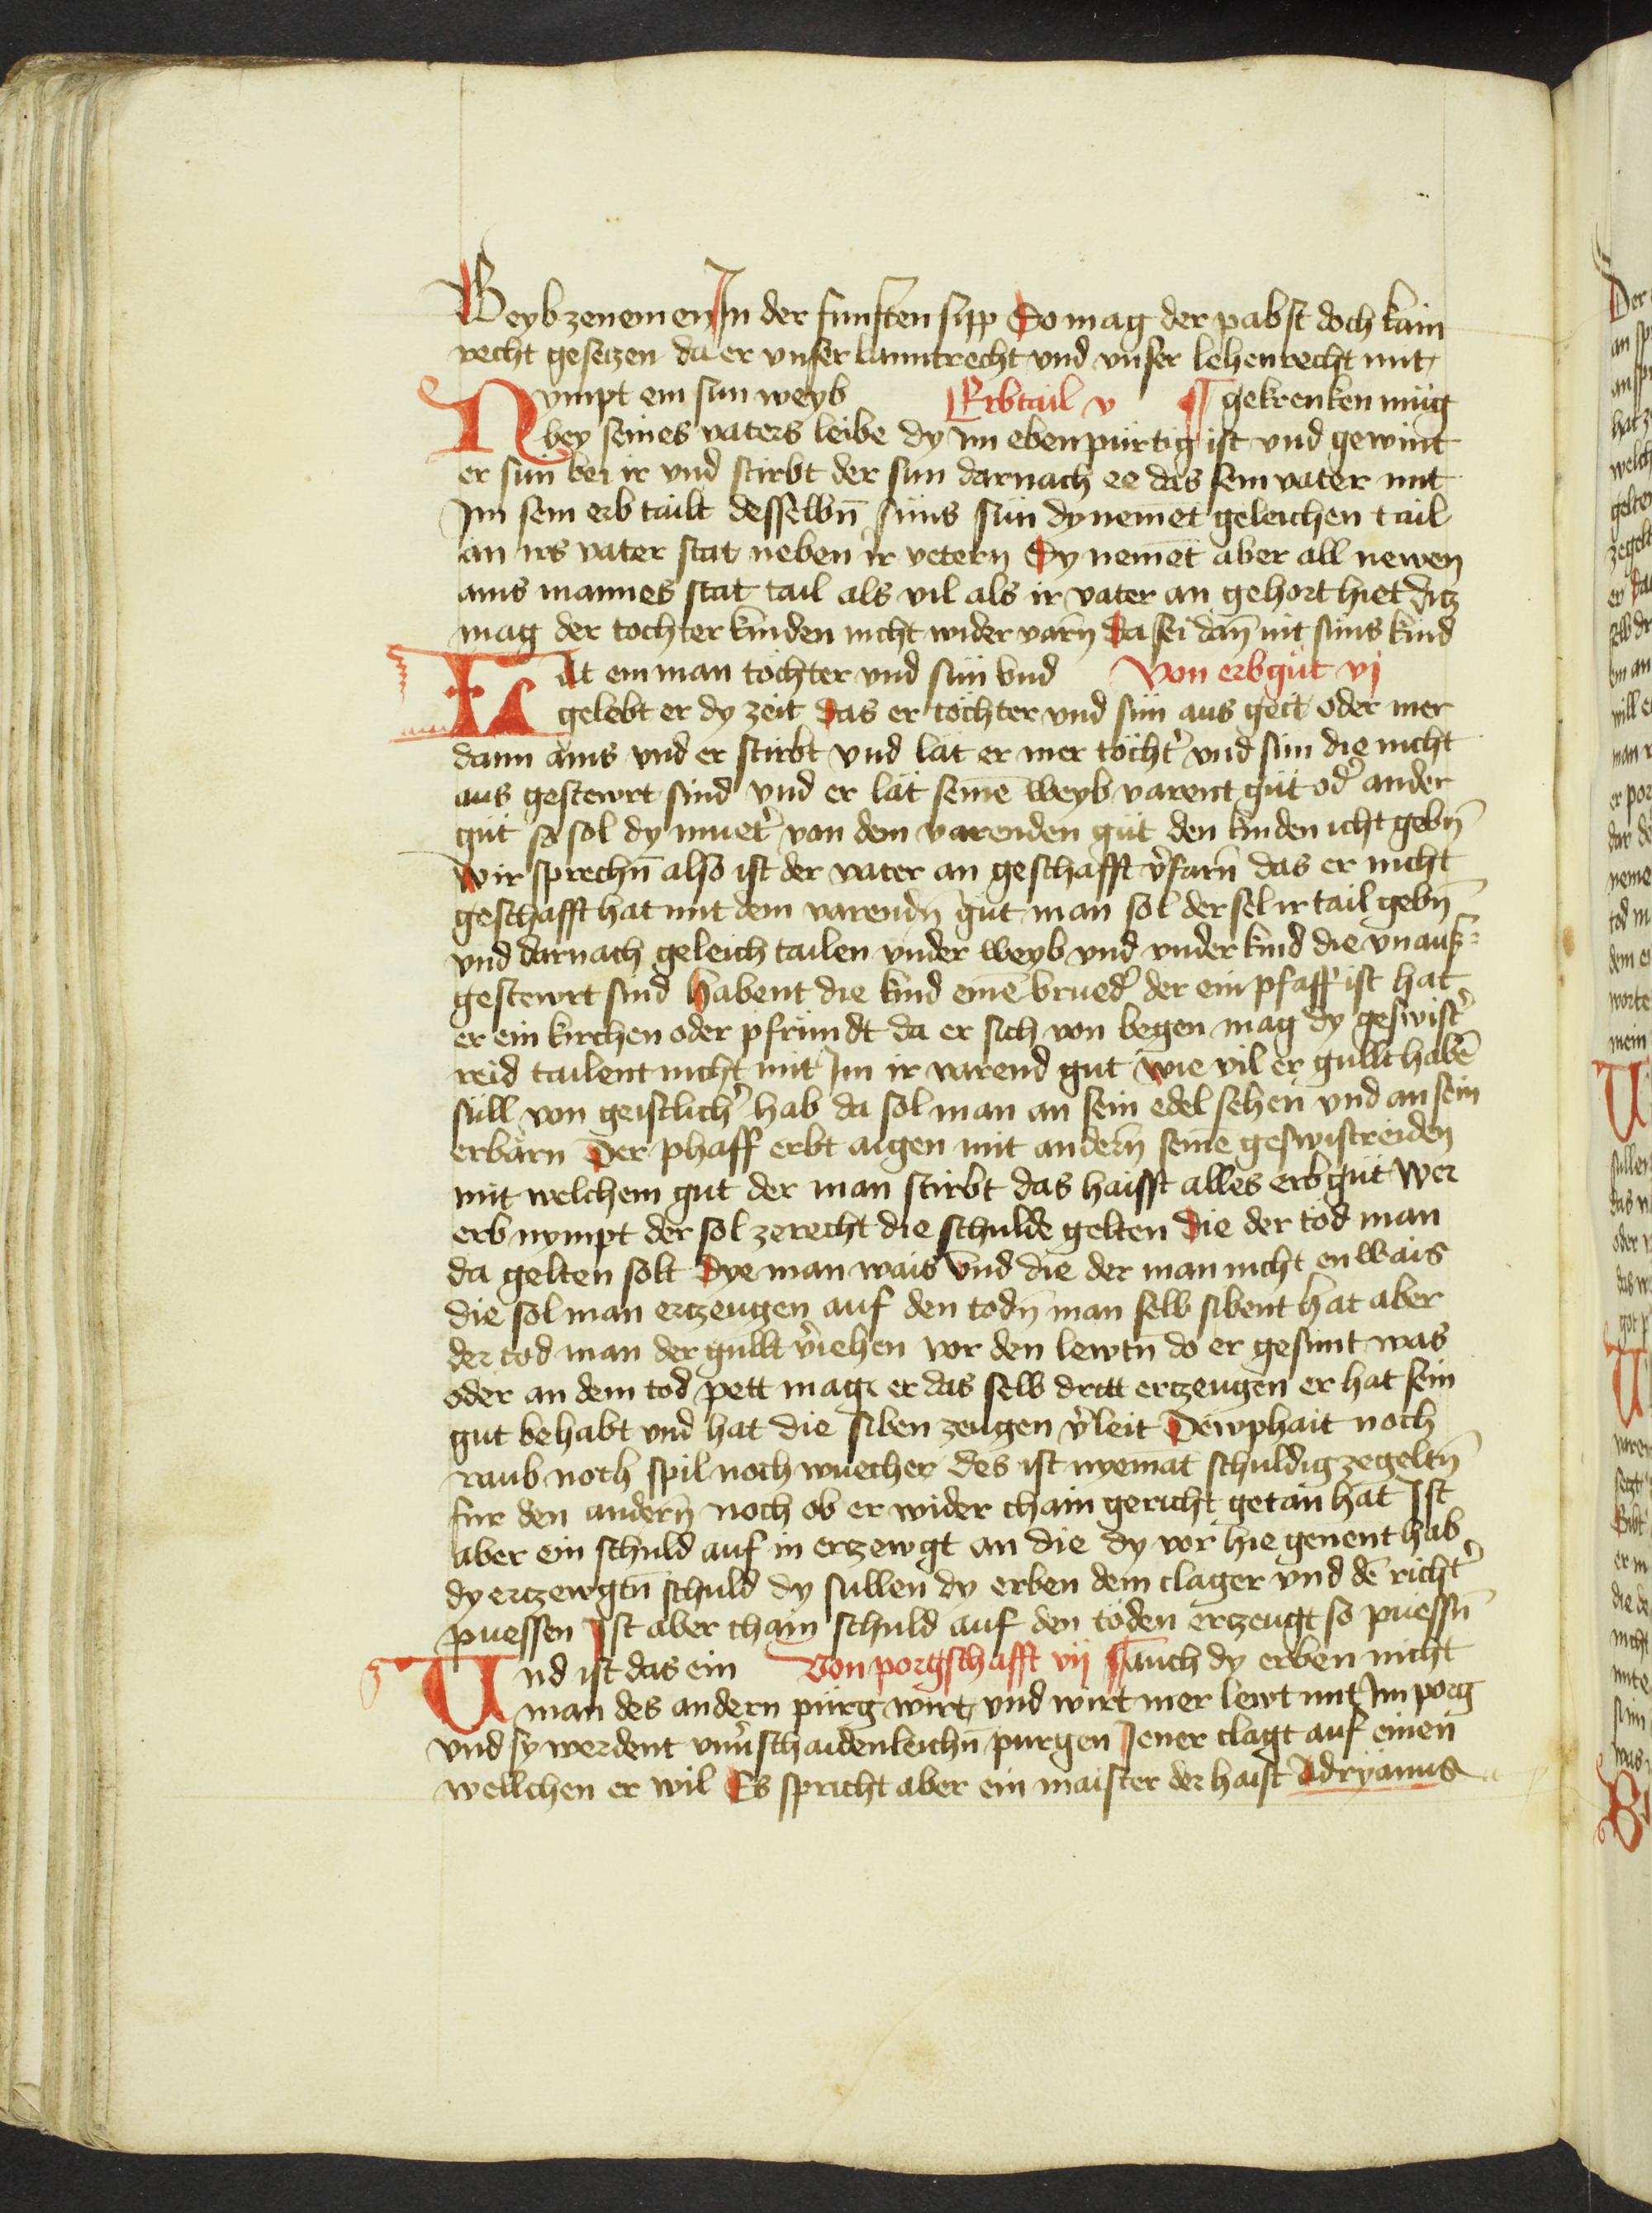 Weyb zenemen In der funften sipp So mag der pabst doch kain
recht gesetzen da er vnser lanntrecht vnd vnser lehenrecht mit
Nympt ein sun weyb Erbtail v ¶ gekrenken müg
bey seines vaters leibe dy im ebenpürtig ist vnd gewint
er sün bei ir vnd stirbt der sun darnach ee das sein vater mit
Im sein erb tailt desselbn̄ süns sün dy nemēt geleichen tail
an irs vater stat neben ir vetern Dy nemēt aber all newen
ains mannes stat tail als vil als ir vater an gehort hiet ditz
mag der tochter kinden nicht wider varn̄ Da sei dan̄ nit süns kind
Hat ein man töchter vnd sün vnd Von erbgüt vj
gelebt er dy zeit das er töchter vnd sün aus geit oder mer
dann ains vnd er stirbt vnd lat er mer töcht̉ vnd sün die nicht
aus gestewrt sind vnd er lät seinē weyb varent güt od̉ ander
güt so sol dy muet̉ von dem varenden güt den kinden icht gebn̄
wir sprechn̄ also ist der vater an geschafft v̉farn̄ das er nicht
geschafft hat mit dem varendn̄ güt man sol der sel ir tail gebn̄
vnd darnach geleich tailen vnder weyb vnd vnder kind die vnaus⸗
gestewrt sind habent die kind einē brued̉ der ein pfaff ist hat
er ein kirchen oder pfründt da er sich von begen mag dy geswist̉
reid tailent nicht mit Im ir varend gut wie vil er gullt habē
süll von geistlich̉ hab da sol man an sein edel sehen vnd an sein
erbärn Der phaff erbt aigen mit andern̄ seinē geswistreiden
mit welchem gut der man stirbt das haisst alles erbgüt wer
erb nympt der sol zerecht die schulde gelten die der tod man
da gelten solt Dye man wais vnd die der man nicht enwais
die sol man ertzeugen auf den todn̄ man selb sibent hat aber
der tod man der gullt v̉iehen vor den lewtn̄ do er gesunt was
oder an dem tod pett mag er das selb dritt ertzeugen er hat sein
gut behabt vnd hat die siben zeugen v̉leit Dewphait noch
raub noch spil noch wuecher des ist nyemāt schuldig zegeltn̄
fur den andern̄ noch ob er wider chain gericht getan hat Ist
aber ein schuld auf in ertzewgt an die dy vor hie genent hab
dy ertzewgtn̄ schuld dy sullen dy erben dem clager vnd dē richt̉
puessen Ist aber chain schuld auf den töden ertzeugt so puessn̄
Vnd ist das ein Von porgschafft vij ¶ auch dy erben nicht
man des andern pürg wirt vnd wirt mer lewt mit Im porg
vnd sy werdent vnv̉schaidenleichn̄ purgen Jener clagt auf einen
wellchen er wil Es spricht aber ein maister der haist Adryanus